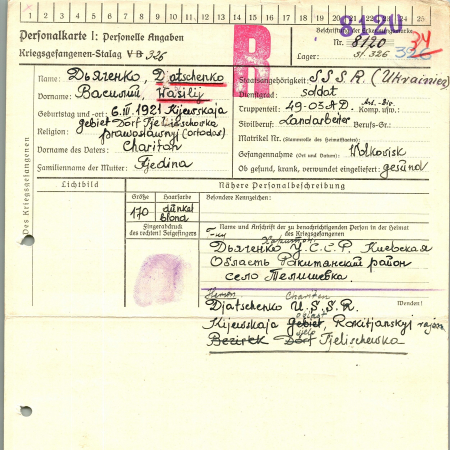 1 2 3 4 5 6 7 8 9 10 11 12 13 14 15 16 17 18 19 20 21 22 23 24 25
8120
Personalkarte I: Personelle Angaben
Kriegsgefangenen-Stalag V B 326
Nr. 8120 34
Lager: st. 326 326
R
Des Kriegsgefangenen
Name: Дьяченко, Djatschenko
Vorname: Василий Wasilij
Geburtstag und -ort: 6.III.1921 Kijewskaja
gebiet Dorf Tjelischowka
Religion: prawoslawnyj (ortodox)
Vorname des Vaters: Chariton
Familienname der Mutter: Fjedina
Staatsangehörigkeit: S S S R (Ukrainier)
Dienstgrad: soldat
Truppenteil: 49.03 A.D. Komp. usw.:
Zivilberuf: Landarbeiter Berufs-Gr.:
Matrikel Nr. (Stammrolle des Heimatlandes):
Gefangennahme (Ort und Datum): Wolkowisk
Ob gesund, krank, verwundet eingeliefert: gesund
Lichtbild
Nähere Personalbeschreibung
Größe Haarfarbe Besondere Kennzeichen:
170 dunkel blond
Fingerabdruck
des rechten! Zeigefingers
Name und Anschrift der zu benachrichtigenden Person in der Heimat
des Kriegsgefangenen
Дьяченко У.С.С.Р. Киевская
Область Ракитянский район
село Телишевка
Wenden!
Chariton
Djatschenko U.S.S.R.
Kijewskaja gebiet, Rokitjanskyj rajon
Bezirk Dorf Tjelischewka